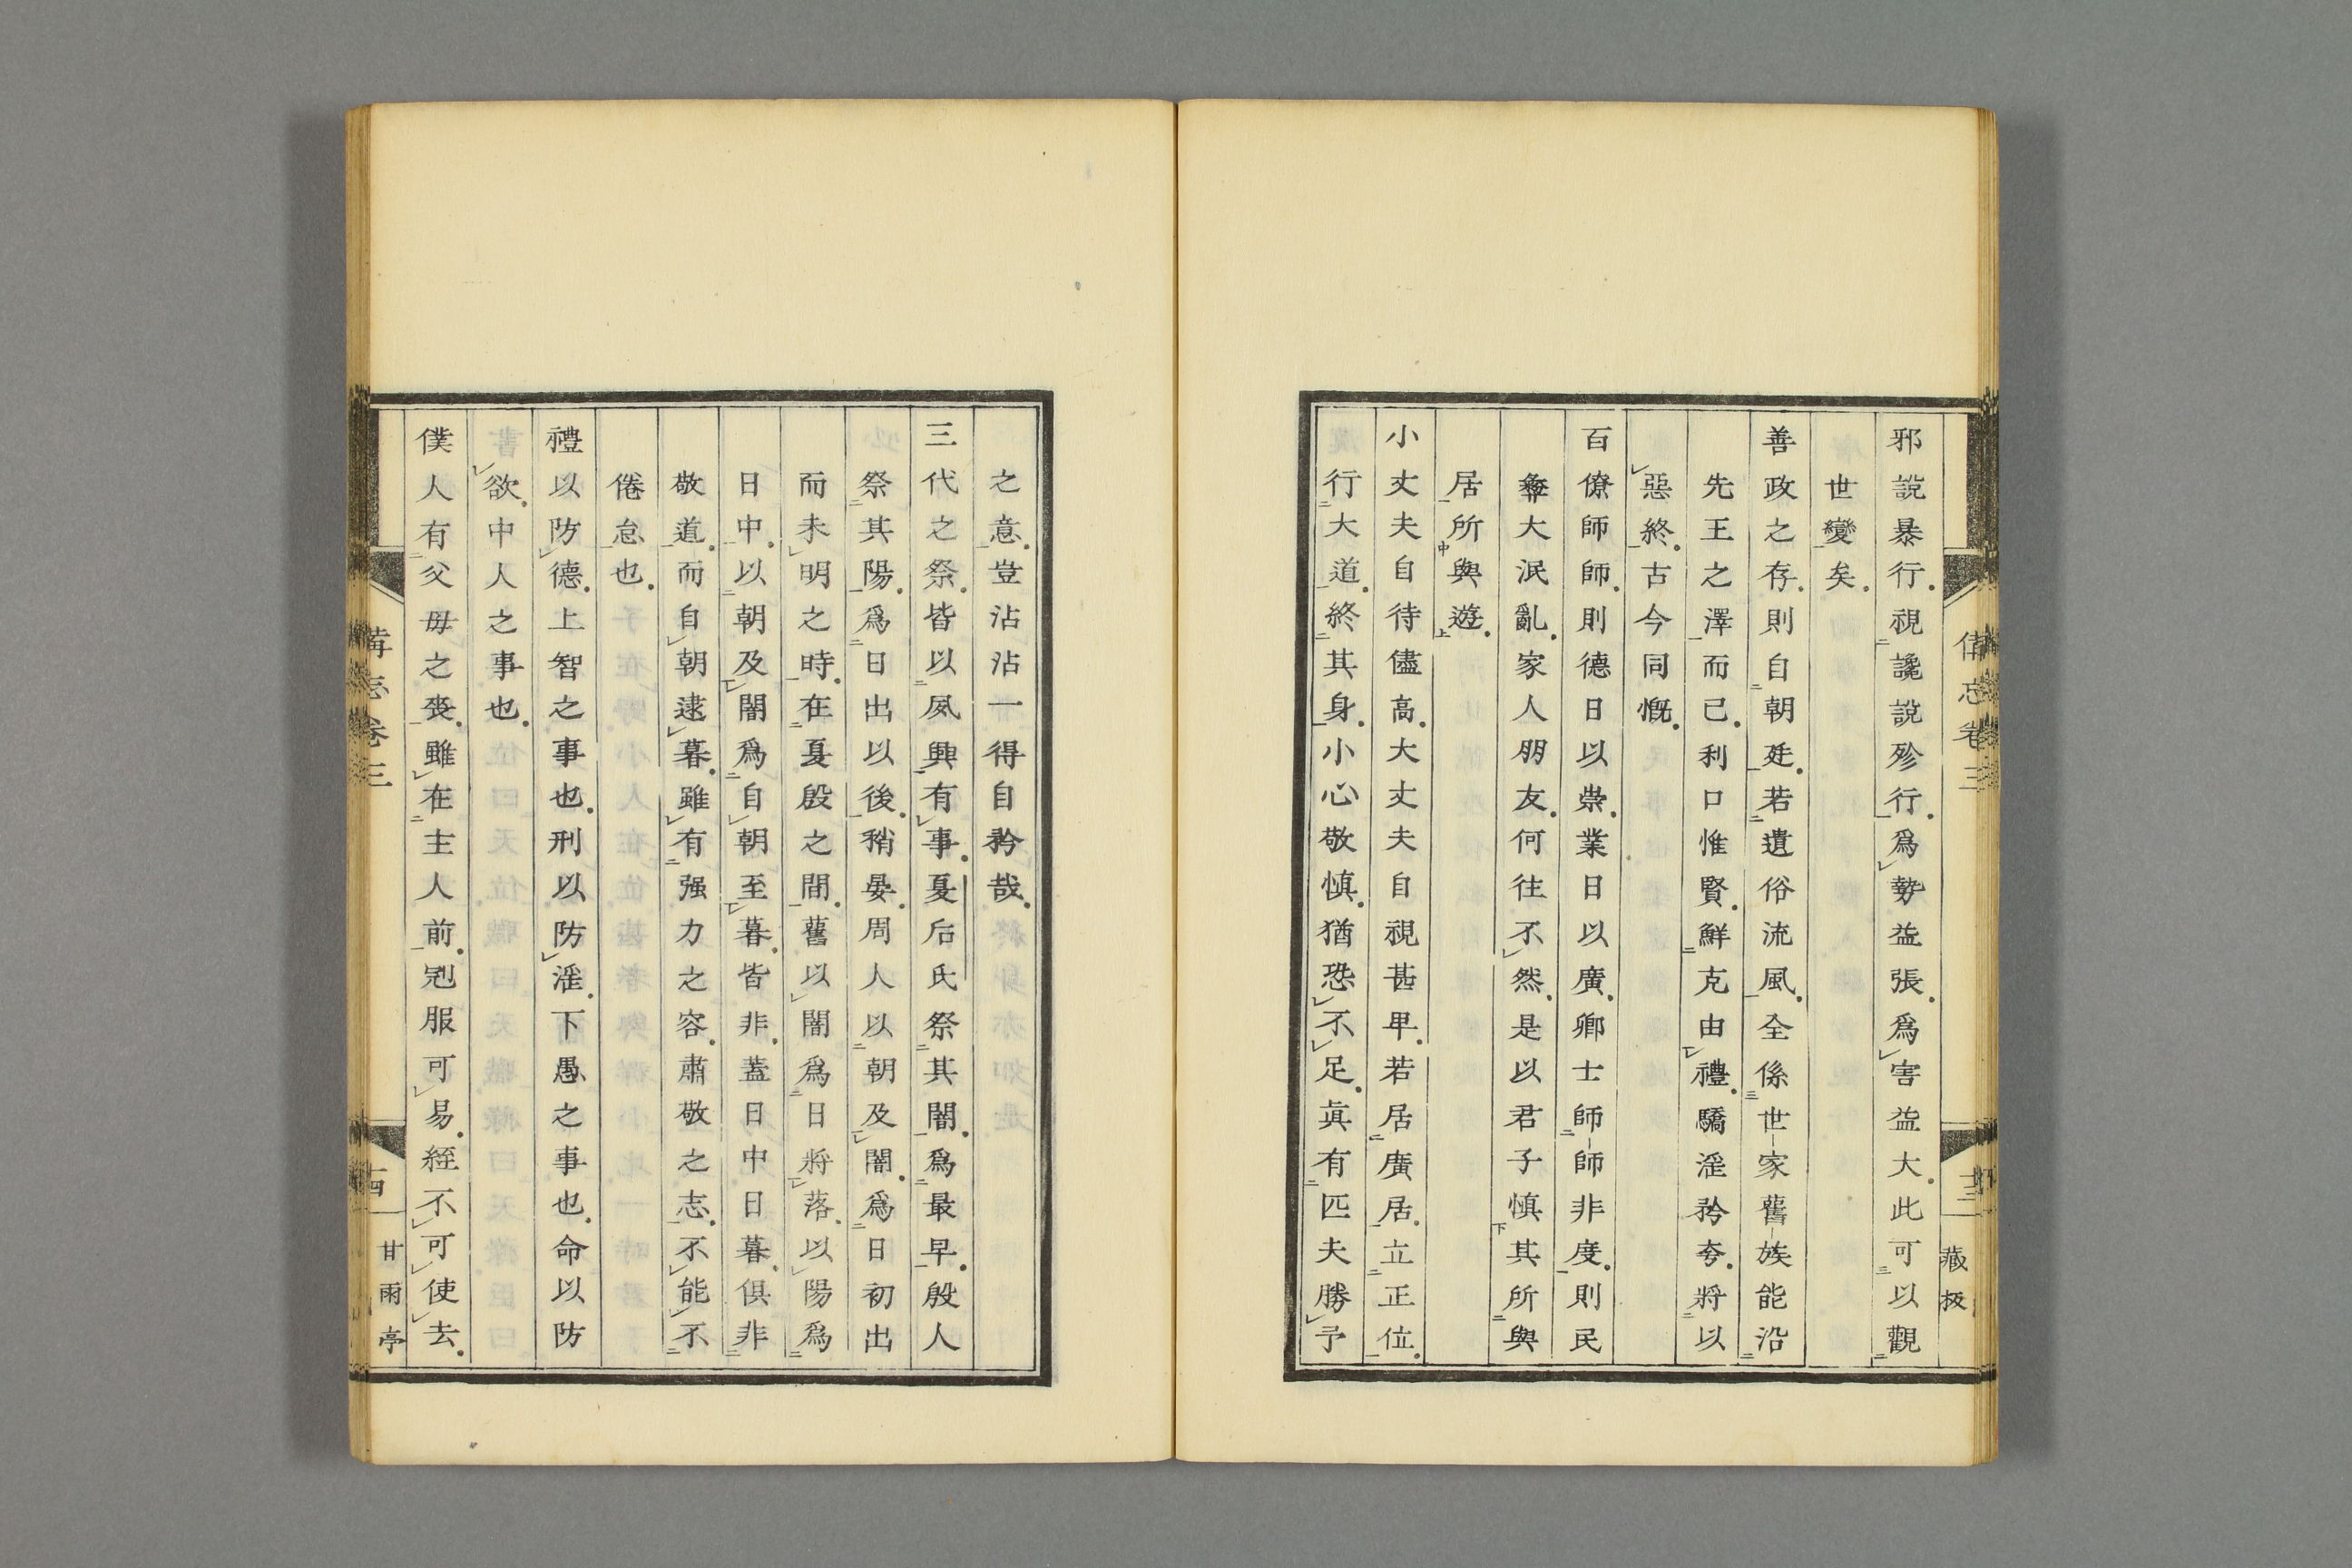 邪說暴行視讒說殄行爲勢益張爲害益大此可以觀
世變矣
善政之存則自朝廷若遺俗流風全係世家舊族能沿
先王之澤而已利口惟賢鮮克由禮驕淫矜夸將以
惡終古今同慨
百僚師師則德日以崇業日以廣卿士師師非度則民
彝大泯亂家人朋友何往不然是以君子愼其所與
居所與遊
小丈夫自待儘高大丈夫自視甚卑若居廣居立正位
行大道終其身小心敬愼猶恐不足眞有匹夫勝予
之意豈沾沾一得自矜哉
三代之祭皆以夙興有事夏后氏祭其闇爲最早殷人
祭其陽爲日出以後稍晏周人以朝及闇爲日初出
而未明之時在夏殷之間舊以闇爲日將落以陽爲
日中以朝及闇爲自朝至暮皆非蓋日中日暮俱非
敬道而自朝逮暮雖有强力之容肅敬之志不能不
倦怠也
禮以防德上智之事也刑以防淫下愚之事也命以防
欲中人之事也
僕人有父母之喪雖在主人前冠服可易絰不可使去
卷三
藏板
卷三
甘雨亭